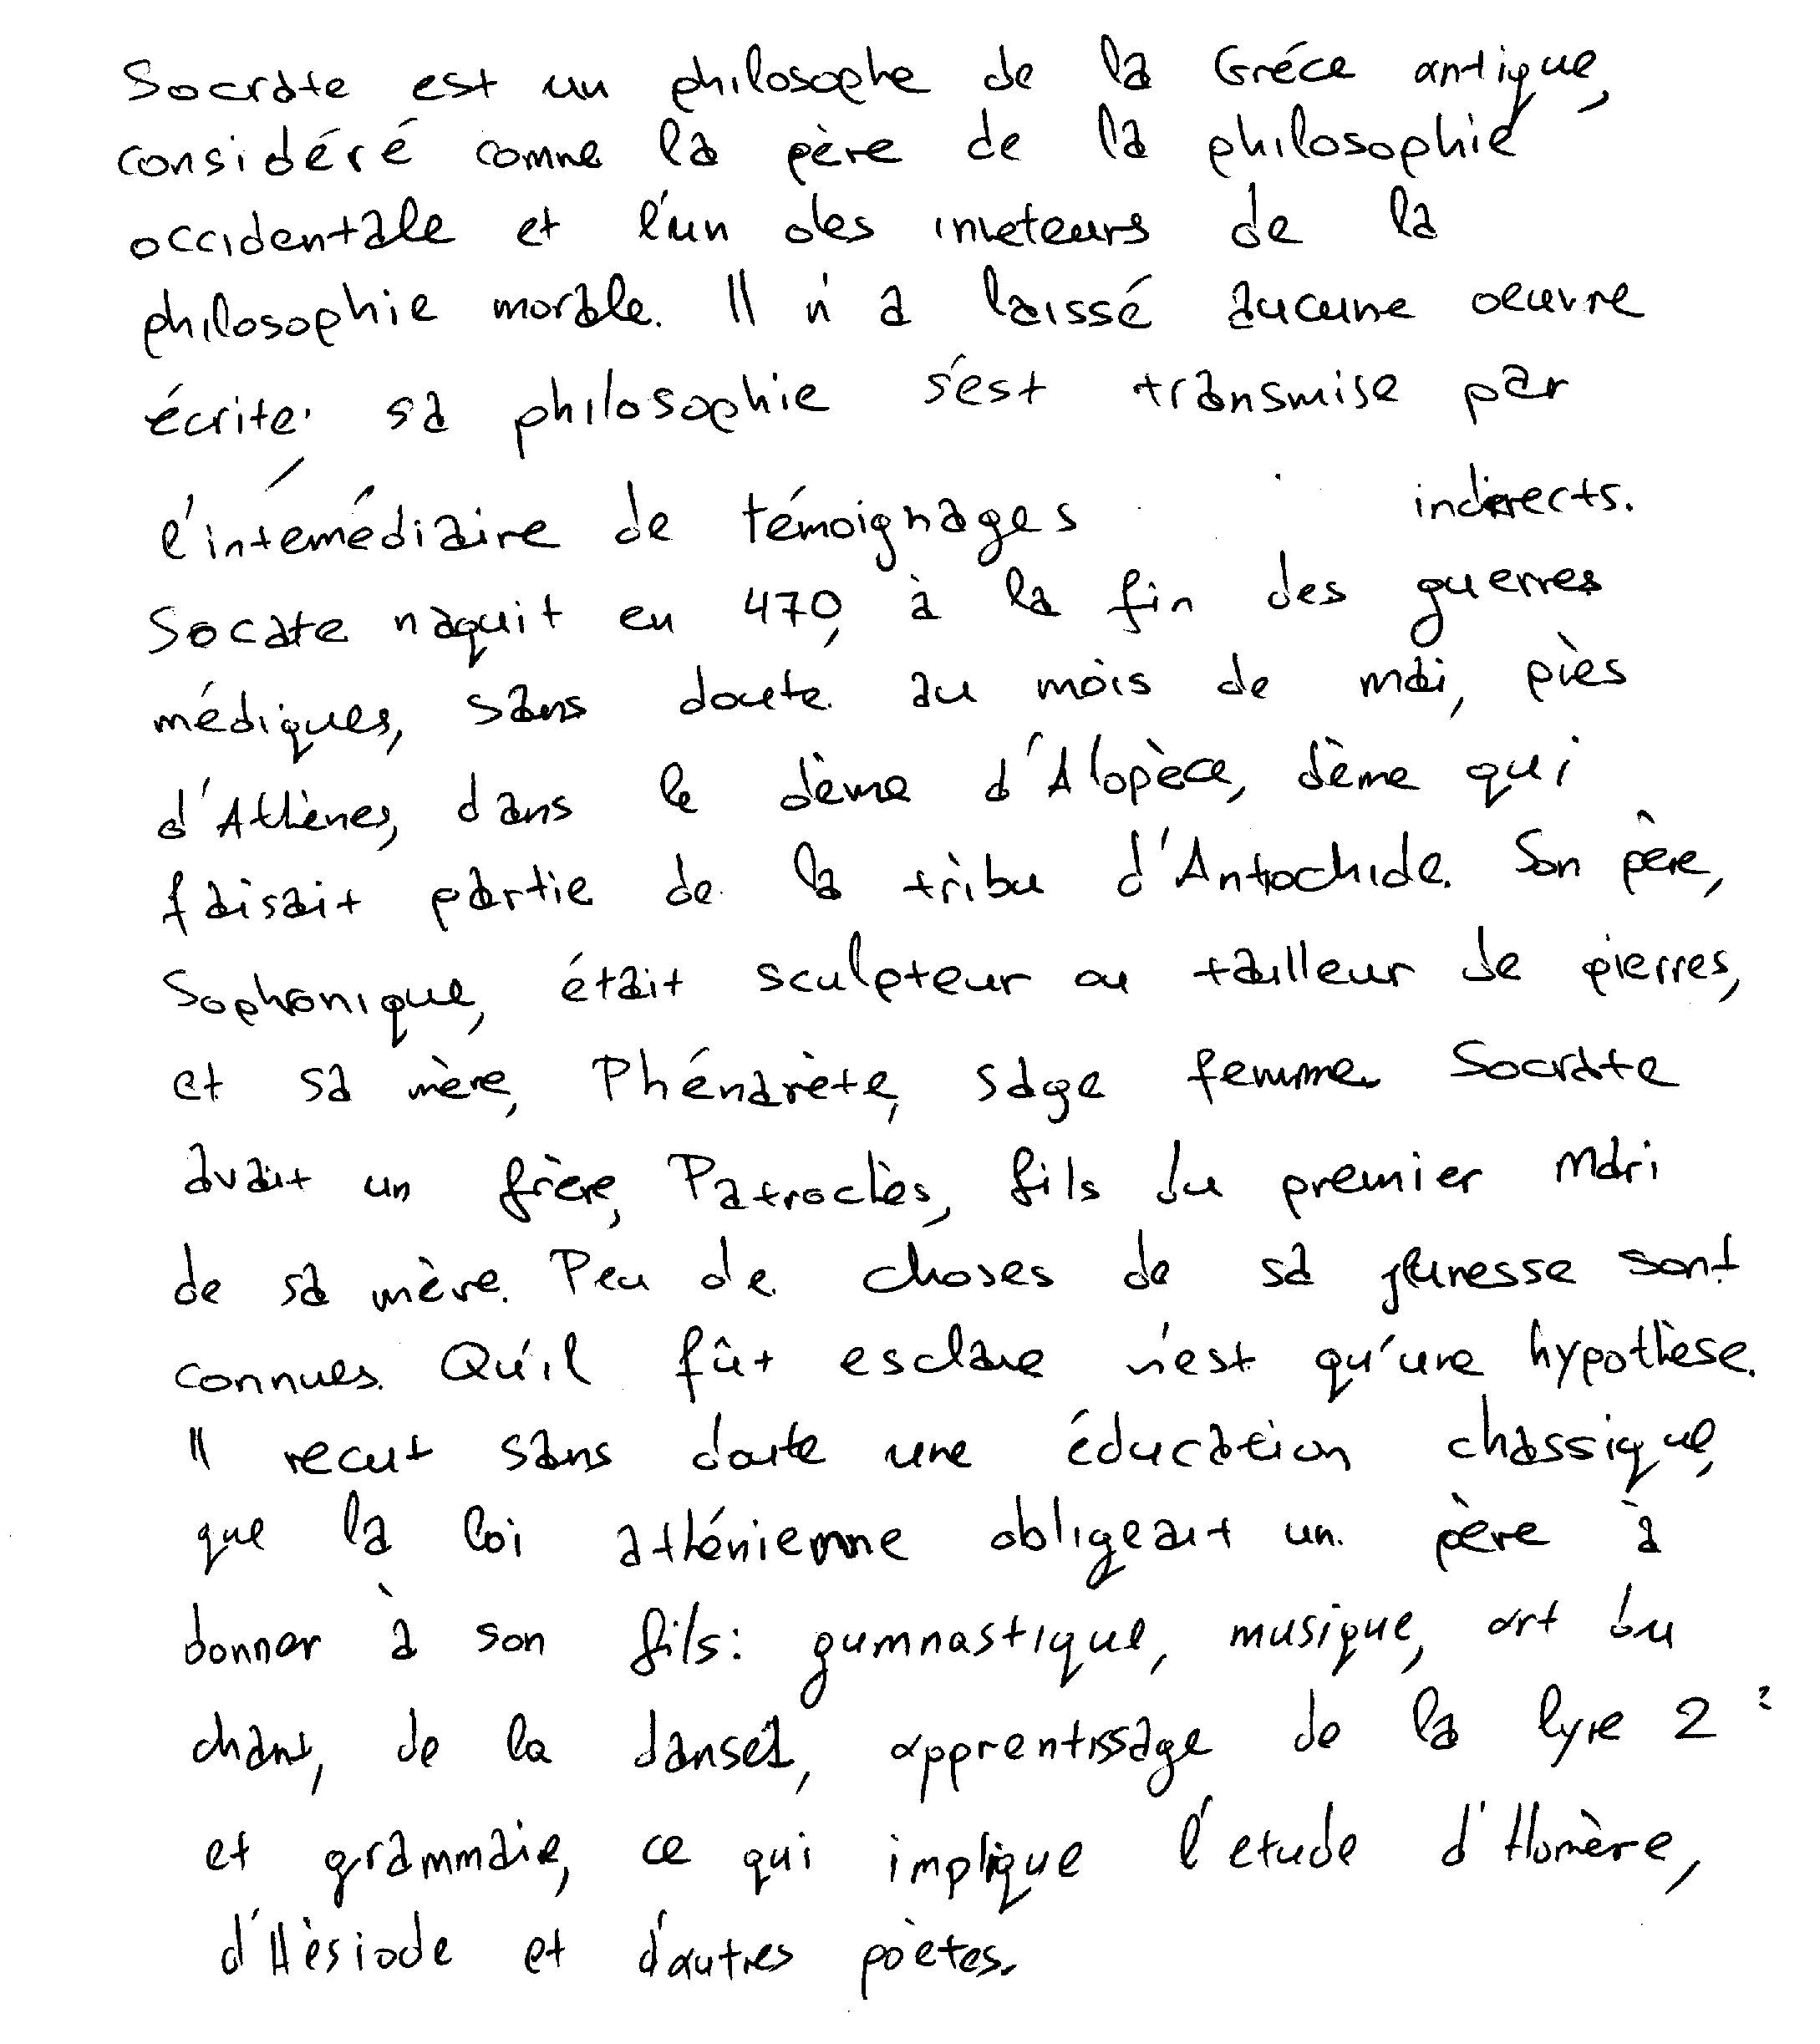 Socrate est un philosophe de la Gréce antique,
considéré comne la père de la philosophie
occidentale et l'un des inveteurs de la
philosophie morale. Il n'a laissé aucune oeuvre
écrite; sa philosophie s'est transmise par
l'intemédiaire de témoignages indirects.
Socate nàquit en 470, à la fin des guerres
médiques, sans doute au mois de mai, près
d'Athènes, dans le dème d'Alopèce, dème qui
faisait partie de la tribu d'Antiochide. Son père,
Sophronique, était sculpteur ou tailleur de pierres,
et sa mère, Phénarète, sage femme. Socrate
avait un frère, Patroclès, fils du premier mari
de sa mère. Peu de choses de sa jeunesse sont
connues. Qu'il fût esclave n'est qu'une hypothèse.
Il recut sans doute une éducation chassique,
que la loi athénienne obligeait un père à
donner à son fils: gumnastique, musique, art du
chant, de la danse1, apprentissage de la lyre 2
et grammaie, ce qui implique l'etude d'Homère,
d'Hèsiode et d'autres poètes.